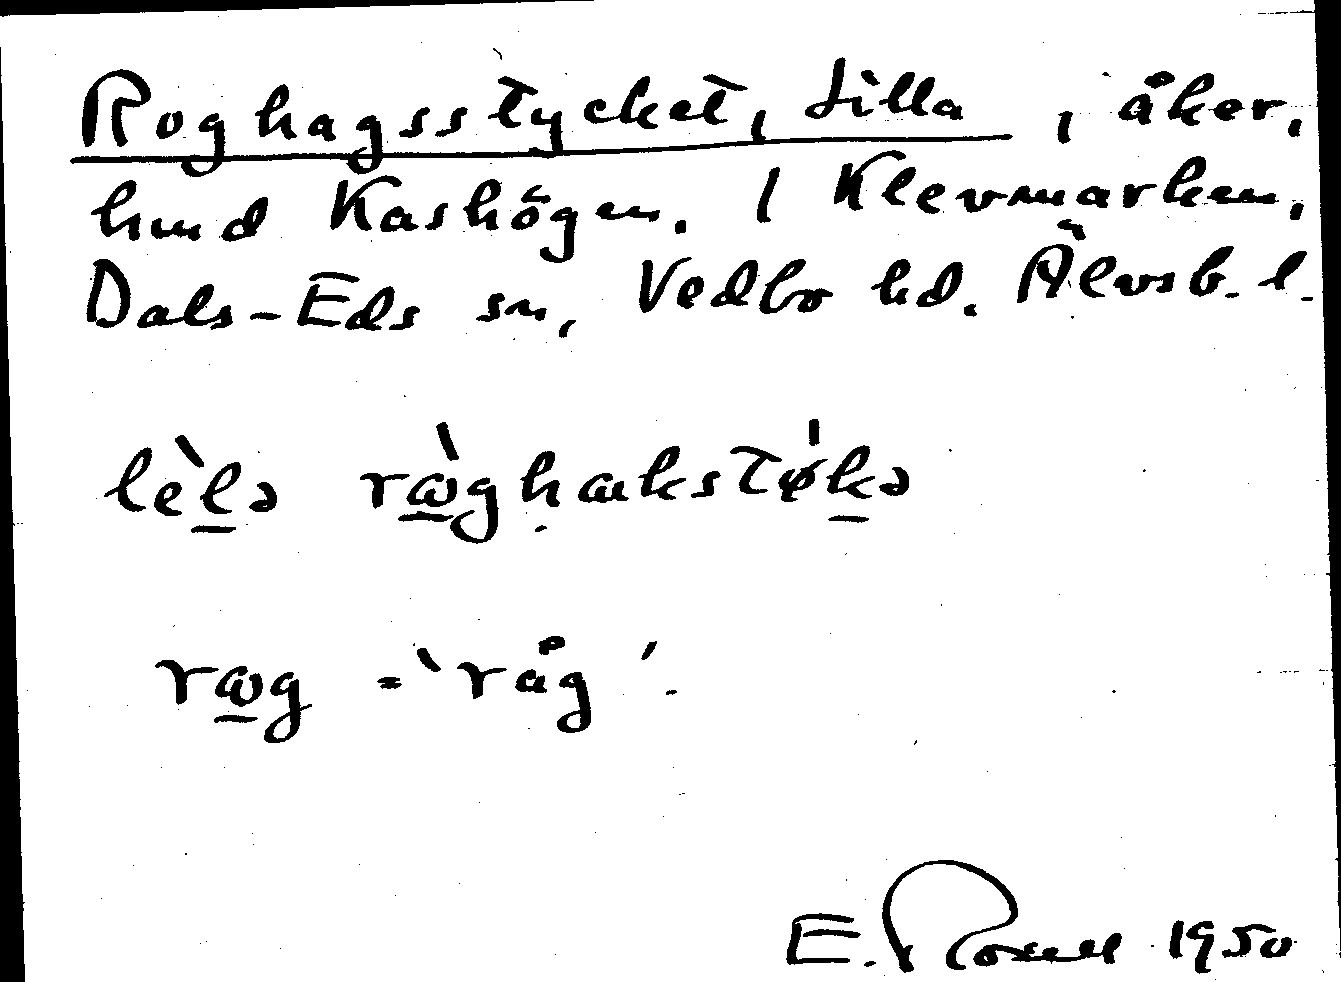 Roghagsstycket, Lilla, åker,
hmd Kashögen. I Klevmarken,
Dals-Eds sn, Vedbo hd. Älvsb. l.
lèlə ræghakstøkə
ræg = 'råg'.
E. 1950